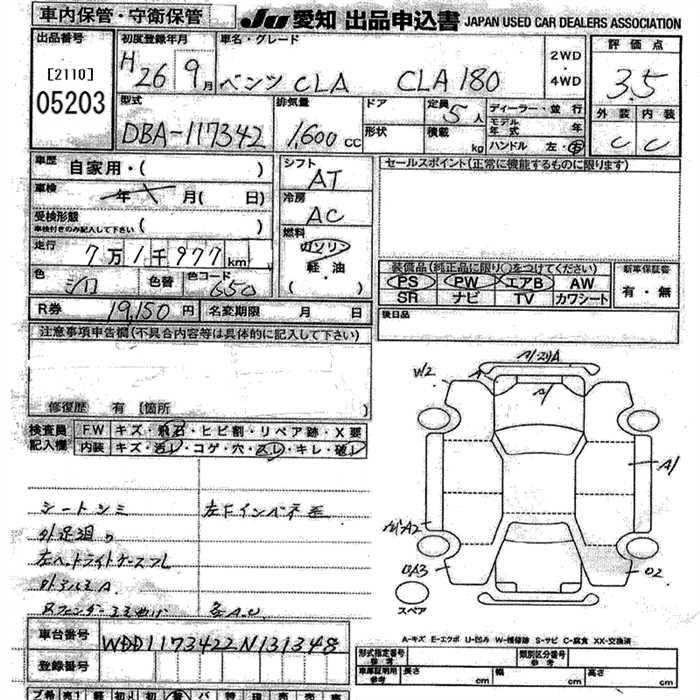 車内保管・守衛保管
JU 愛知 出品申込書 JAPAN USED CAR DEALERS ASSOCIATION
出品番号 初度登録年月 車名・グレード 評価点
[2110] H 26 9月 ベンツ CLA CLA 180 2WD・4WD 3.5
05203
型式 排気量 ドア 定員 5人 ディーラー・並行 外装 内装
DBA-117342 1,600cc 形状 積載 kg モデル年式 年 C C
ハンドル 左・右
車歴 自家用・( ) シフト AT セールスポイント(正常に機能するものに限ります)
車検 年 月( 日) 冷房 AC
受検形態 車検付きのみ記入して下さい ( )
走行 7万1千977km 燃料 ガソリン・軽油
装備品(純正品に限り○をつけてください) 新車保証書
色 シロ 色替 色コード 650 PS PW エアB AW 有・無
SR ナビ TV カワシート
R券 19,150円 名変期限 月 日 後日品
注意事項申告欄(不具合内容等は具体的に記入して下さい)
修復歴 有 [箇所 )
検査員記入欄 FW キズ・飛石・ヒビ割・リペア跡・X要
内装 キズ・汚レ・コゲ・穴・スレ・キレ・破レ
シートシミ
左ヘッドライトケースフレ
外アルミA
W2
A
A1
A1
BA3
02
スペア
A-キズ E-エクボ U-凹み W-補修跡 S-サビ C-腐食 XX-交換済
車台番号 WDD1173422N131348
登録番号
形式指定番号 参考 類別区分番号 参考
車庫証明用 参考 長さ cm 幅 cm 高さ cm